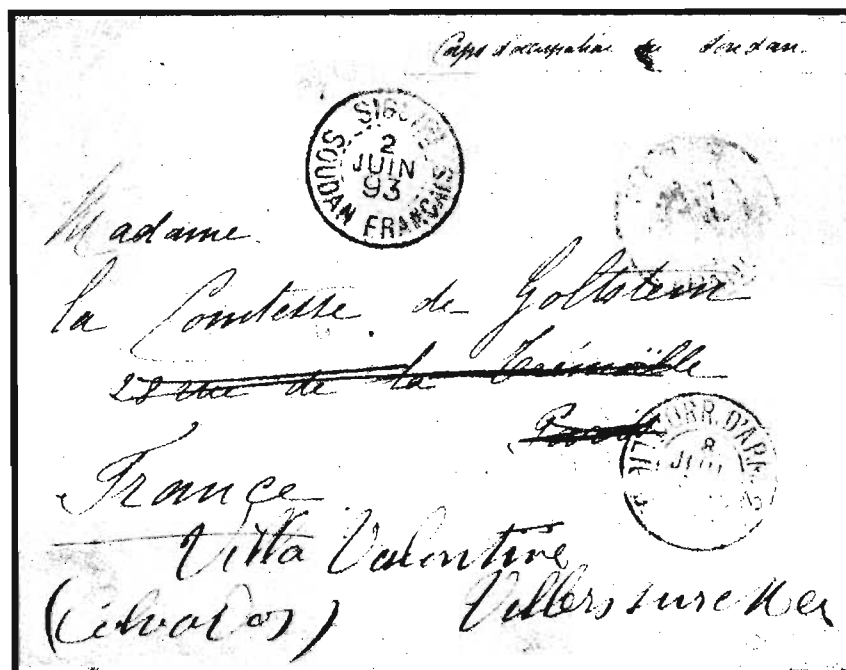 Corps d'occupation du Soudan.
SIGUIRI
2
JUIN
93
SOUDAN FRANÇAIS
Madame
la Comtesse de Goltstein
28 rue de la Trémoïlle
Paris
CORR. D'ARM
8
JUIL
France
Villa Valentine
(Calvados) Villers sur Mer